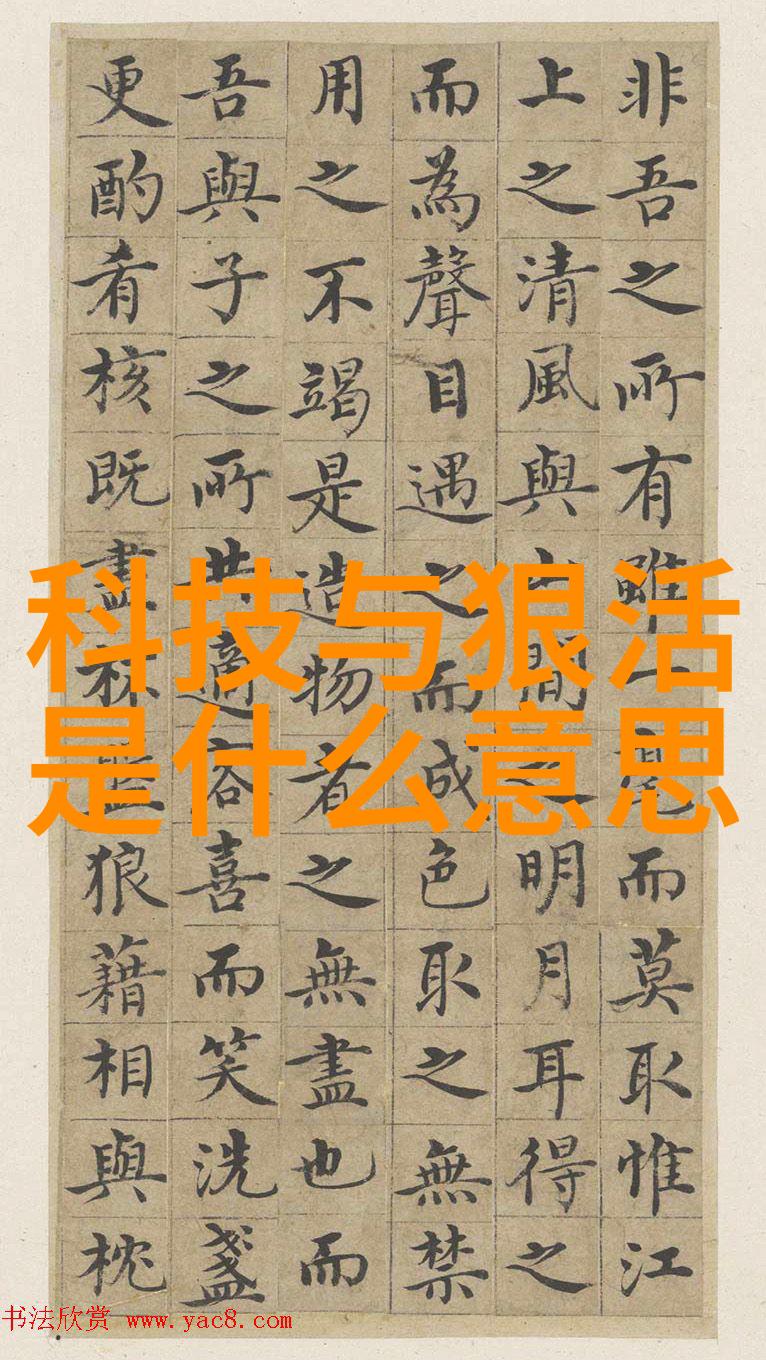 非吾之所有雖一毫而莫取惟江
上之清風與山間之明月耳得之
而為聲目遇之而成色取之無禁
用之不竭是造物者之無盡也而
吾與子之所共適客喜而笑洗盞
更酌肴核既盡杯盤狼藉相與枕
科技与狠活
是什么意思
书法欣赏 www.yac8.com